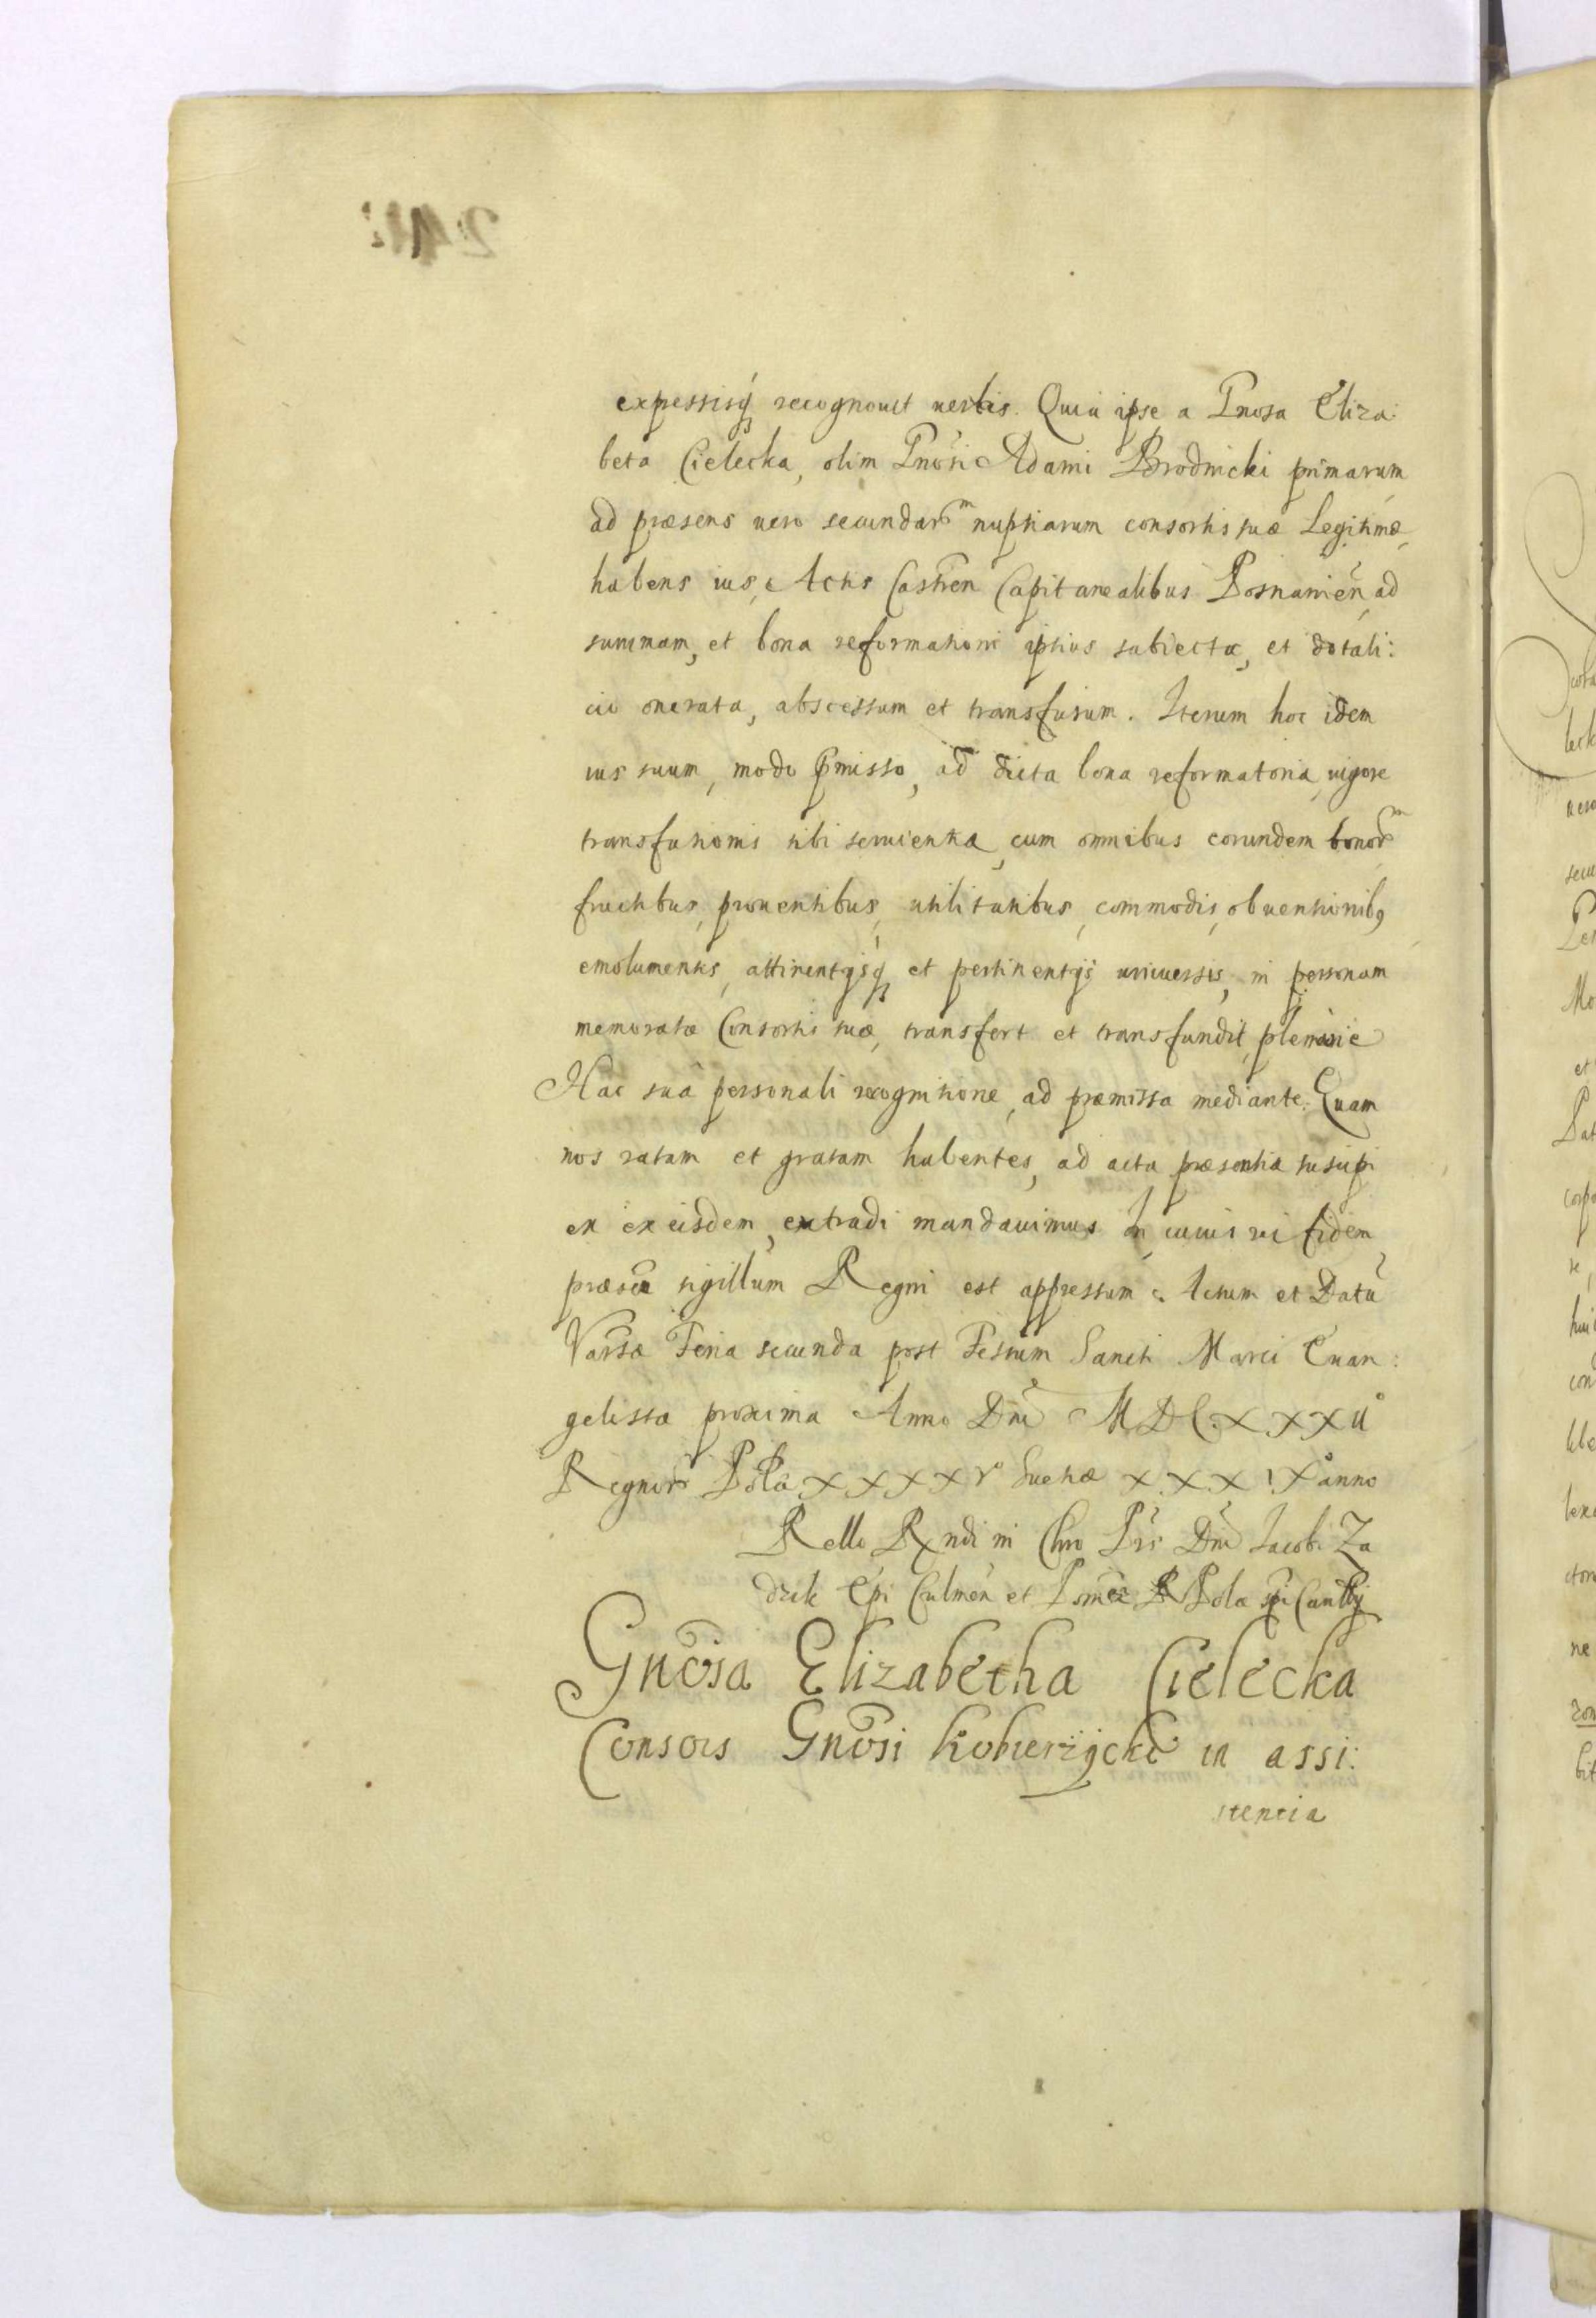 expessisq́ recognouit uerbis. Quia ipse a Gnosa Eliza:
beta Cielecka, olim Gnosi Adami Brodnicki primarum
ad præsens uero secundarm nuptiarum consortis suæ Legitimæ,
habens ius, Actis Castren Capitanealibus Posnanien, ad
summam, et bona reformationi ipsius subiecta, et dotali:
cio onerata, abscessum et transfusum. Iterum hoc idem
ius suum, modo pmisso, ad dicta bona reformatoria, uigore
transfusionis sibi seruientia, cum omnibus eorundem bonorm
fructibus, prouentibus, utilitatibus, commodis, obuentionibq
emolumentis, attinentijsq́ et pertinentijs uniuersis, in personam
memoratæ Consortis suæ, transfert et transfundit, plenarie
Hac suâ personali recognitione, ad præmissa mediante. Quam
nos ratam et gratam habentes, ad acta præsentia susupi
ex ex eisdem, extradi mandauimus In cuius rei fidem,
præsen sigillum Regni est appressum. Actum et Datū
Varsæ Feria secunda post Festum Sancti Marci Euan:
gelistæ proxima Anno Dni M.D.C.XXXIIº
Regnor Pola XXXXVº Suetiæ XXXIXº anno
Rello Rxndi in Chro Pris Dni Iacobi Za
dzik Epi Culmen et Pomez R Pola spi Canllrij
Gnosa Elizabetha Cielecka
Consors Gnosi Kobierzÿcki in assi:
stencia